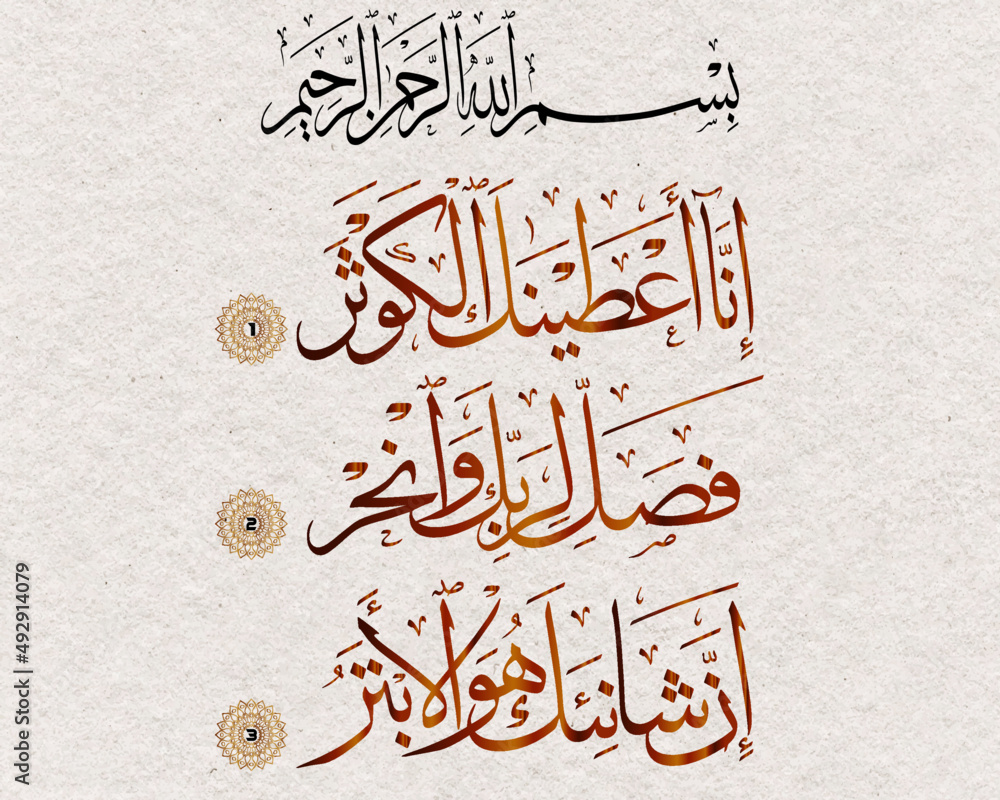 بِسْمِ ٱللَّهِ ٱلرَّحْمَٰنِ ٱلرَّحِيمِ
إِنَّآ أَعْطَيْنَٰكَ ٱلْكَوْثَرَ 1
فَصَلِّ لِرَبِّكَ وَٱنْحَرْ 2
إِنَّ شَانِئَكَ هُوَ ٱلْأَبْتَرُ 3
Adobe Stock | #492914079
Adobe Stock